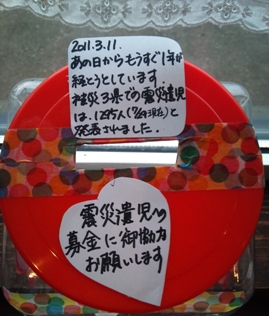 2011.3.11.
あの日からもうすぐ1年が
経とうとしています.
被災3県での震災遺児
は、1295人(9/29現在)と
発表されました.
震災遺児への
募金に御協力
お願いします